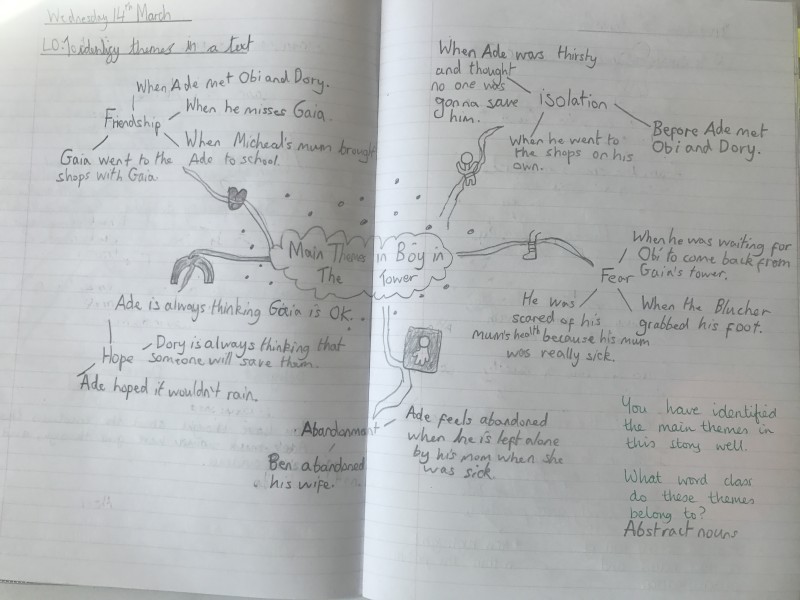 Wednesday 14th March
LO: To identify themes in a text
When Ade met Obi and Dory.
Friendship
When he misses Gaia.
When Micheal's mum brought
Ade to school.
Gaia went to the
shops with Gaia.
When Ade was thirsty
and thought
no one was
gonna save
him.
isolation
When he went to
the shops on his
own.
Before Ade met
Obi and Dory.
Main Themes in Boy in
The Tower
When he was waiting for
Obi to come back from
Gaia's tower.
Fear
He was
scared of his
mum's health because his mum
was really sick.
When the Blucher
grabbed his foot.
Ade is always thinking Gaia is OK.
Hope
Dory is always thinking that
someone will save them.
Ade hoped it wouldn't rain.
Abandonment
Ben abandoned
his wife.
Ade feels abandoned
when he is left alone
by his mom when she
was sick.
You have identified
the main themes in
this story well.
What word class
do these themes
belong to?
Abstract nouns